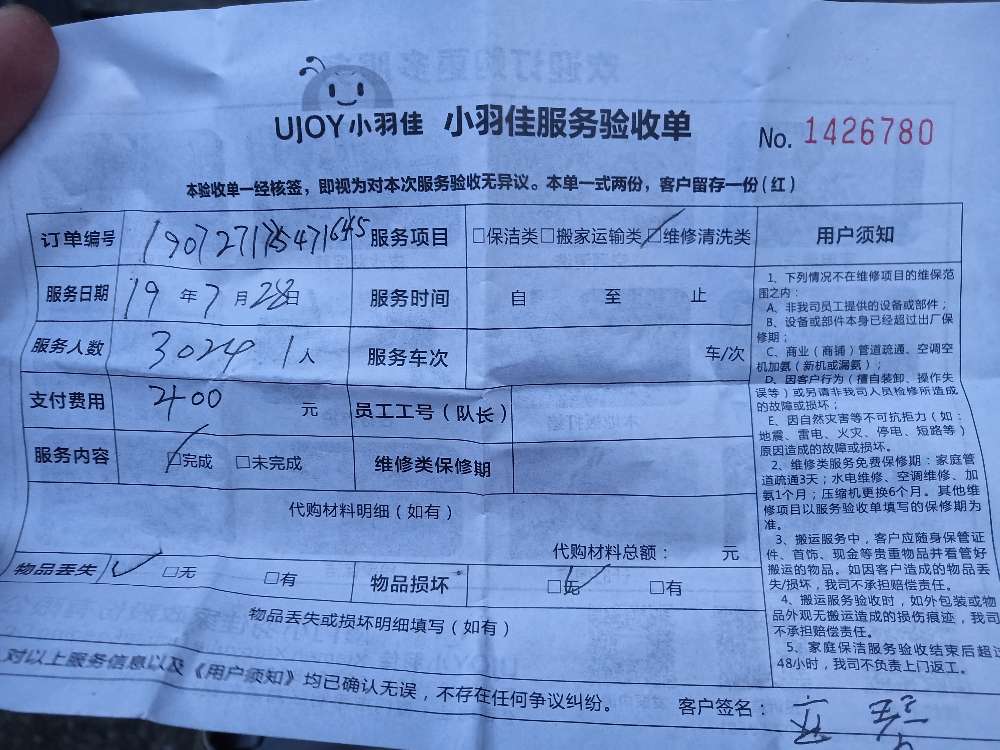 UJOY小羽佳 小羽佳服务验收单 No. 1426780
本验收单一经核签，即视为对本次服务验收无异议。本单一式两份，客户留存一份(红)
订单编号 服务项目 □保洁类□搬家运输类□维修清洗类 用户须知
服务日期 19 年 7 月 28 日 服务时间 自 至 止
服务人数 3024 1 人 服务车次 车/次
支付费用 400 元 员工工号（队长）
服务内容 □完成 □未完成 维修类保修期
代购材料明细（如有）
代购材料总额： 元
物品丢失 □无 □有 物品损坏 □无 □有
物品丢失或损坏明细填写（如有）
1、下列情况不在维修项目的维保范
围之内：
A、非我司员工提供的设备或部件；
B、设备或部件本身已经超过出厂保
修期；
C、商业（商铺）管道疏通、空调空
机加氨（新机或漏氨）；
D、因客户行为（擅自装卸、操作失
误等）或另请非我司人员检修所造成
的故障或损坏；
E、因自然灾害等不可抗拒力（如：
地震、雷电、火灾、停电、短路等）
原因造成的故障或损坏。
2、维修类服务免费保修期：家庭管
道疏通3天；水电维修、空调维修、加
氨1个月；压缩机更换6个月。其他维
修项目以服务验收单填写的保修期为
准。
3、搬运服务中，客户应随身保管证
件、首饰、现金等贵重物品并看管好
搬运的物品。如因客户造成的物品丢
失/损坏，我司不承担赔偿责任。
4、搬运服务验收时，如外包装或物
品外观无搬运造成的损伤痕迹，我司
不承担赔偿责任。
5、家庭保洁服务验收结束后超过
48小时，我司不负责上门返工。
对以上服务信息以及《用户须知》均已确认无误，不存在任何争议纠纷。 客户签名：